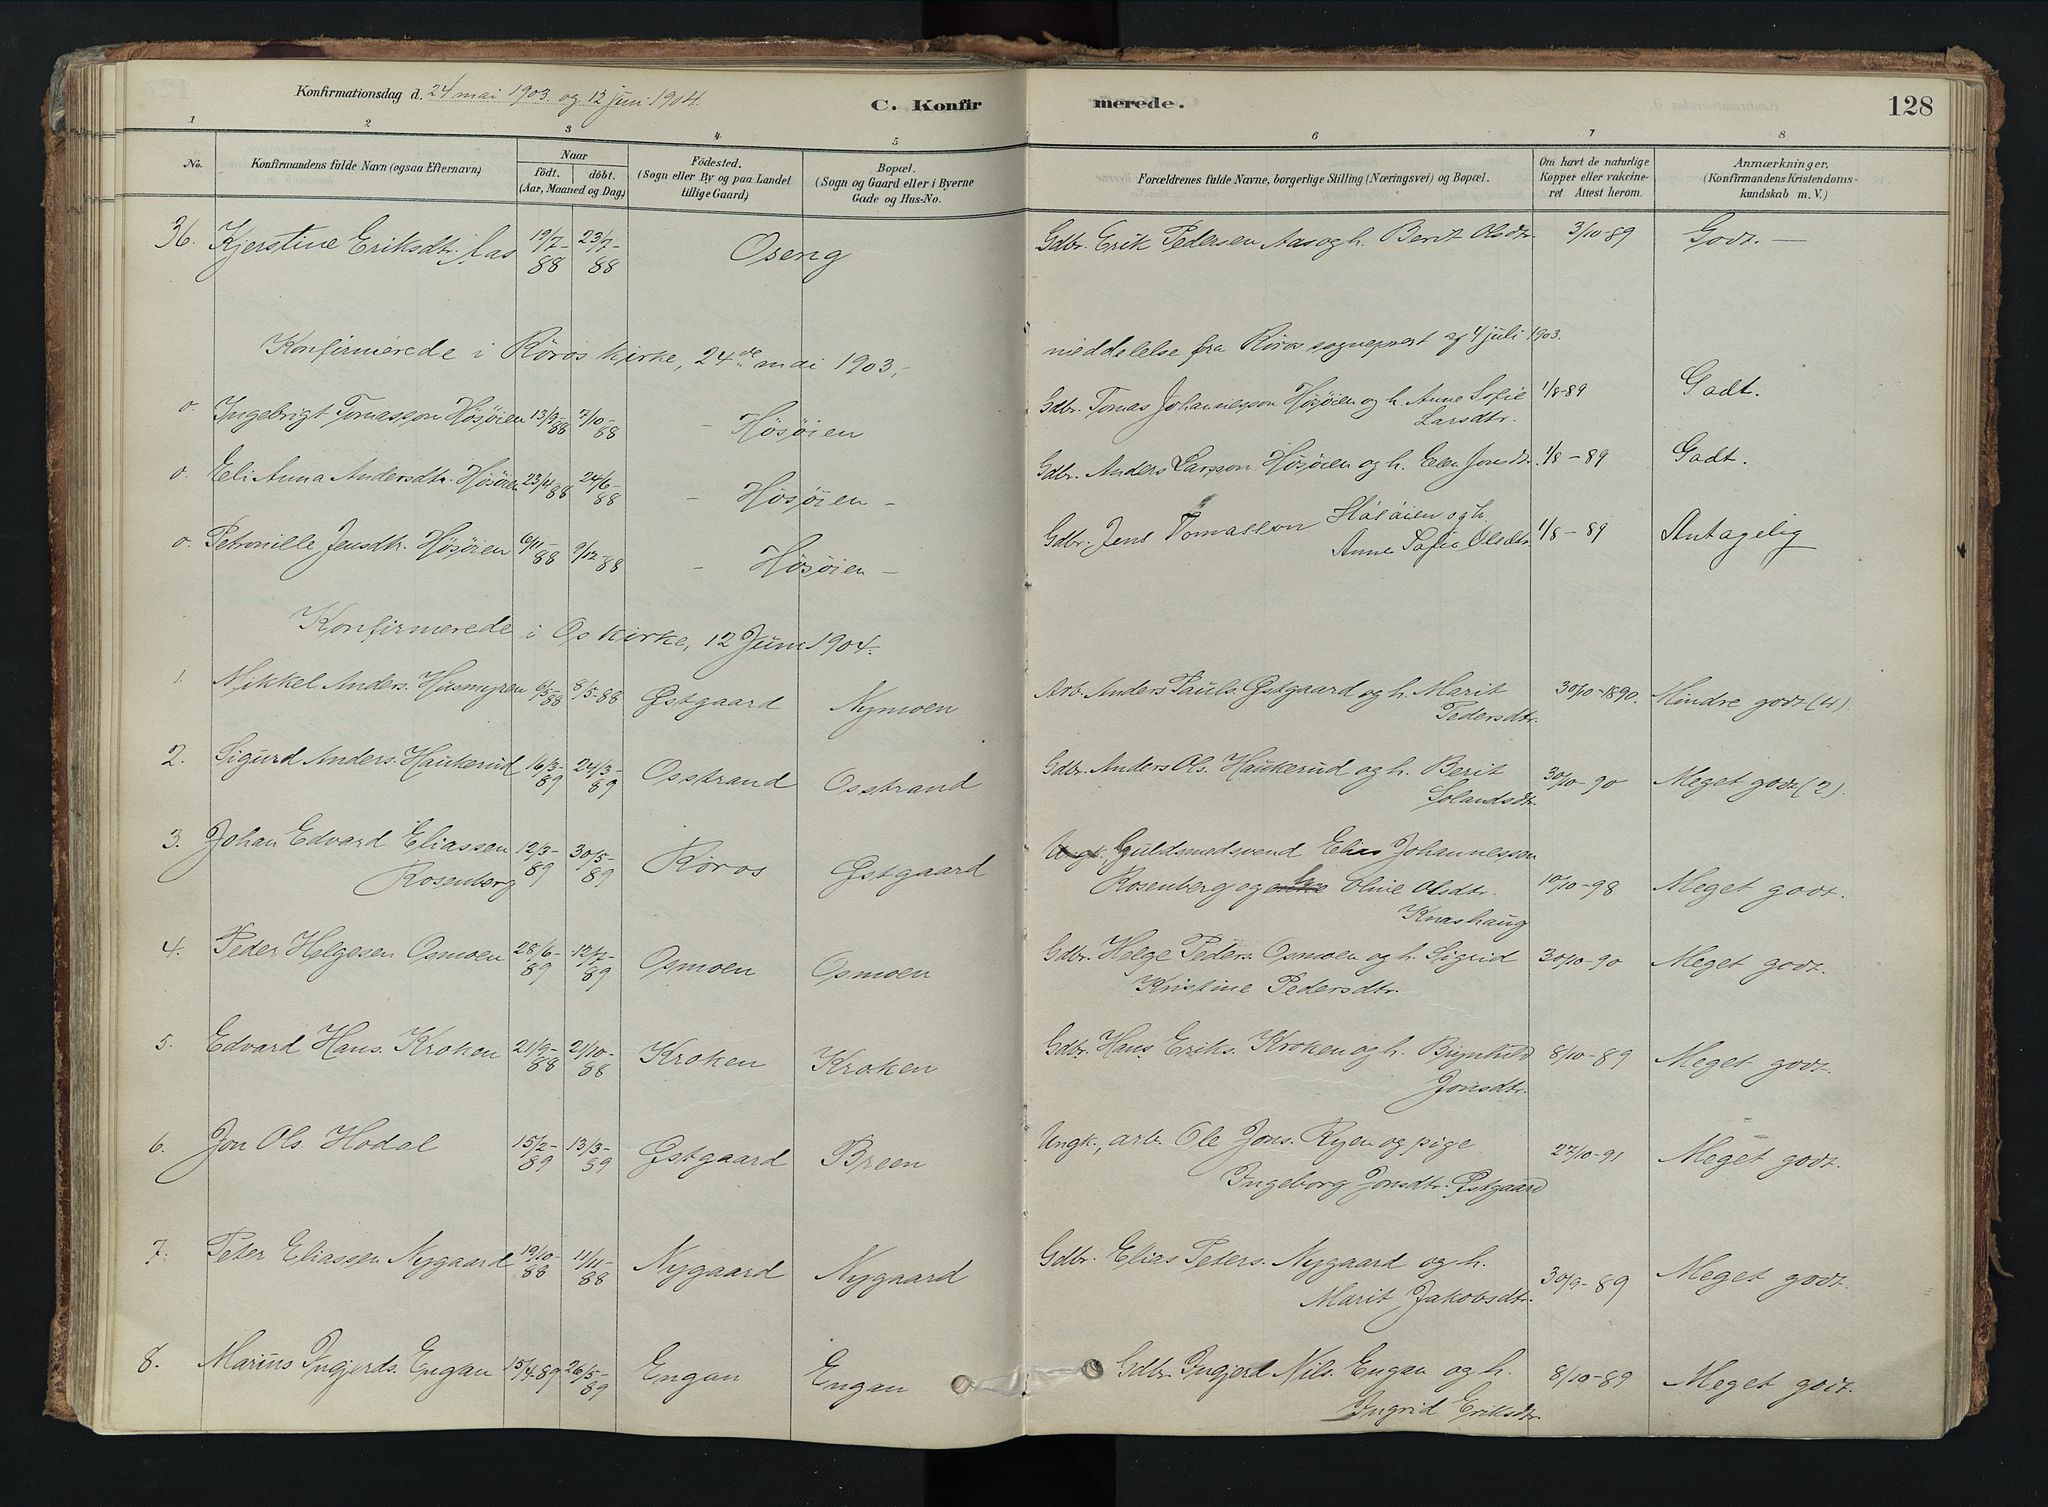 Konfirmationsdag d. 24 mai 1903 og 12 juni 1904.
C. Konfir merede. 128
1 2 3 4 5 6 7 8
No. Konfirmandens fulde Navn (ogsaa Efternavn) Naar født. døbt. (Aar, Maaned og Dag) Fødested. (Sogn eller By og paa Landet tillige Gaard) Bopæl. (Sogn og Gaard eller i Byerne Gade og Hus-No. Forældrenes fulde Navne, borgerlige Stilling (Næringsvei) og Bopæl. Om havt de naturlige Kopper eller vakcineret. Attest herom. Anmærkninger, (Konfirmandens Kristendomskundskab m. V.)
36. Kjerstine Eriksdt. Aas 19/7-88 23/7-88 Oseng Gdbr. Erik Pedersen Aas og h. Berit Olsdtr. 3/10-89 Godt. —
Konfirmerede i Røros kirke, 24de mai 1903,- meddelelse fra Røros sogneprest af 4 juli 1903.
o. Ingebrigt Tomasson Høsøien 13/9-88 7/10-88 - Høsøien Gdbr. Tomas Johannesson Høsøien og h. Anne Sofie 1/8-89 Godt.
Larsdtr.
o. Eli Anna Andersdtr. Høsøien 23/4 88 24/6-88 - Høsøien - Gdbr. Anders Larsson Høsøien og h. Elen Jonsdtr. 1/8-89 Godt.
o. Petronille Jensdtr. Høsøien 6/11-88 9/12-88 - Høsøien - Gdbr. Jens Tomasson Høsøien og h. 1/8-89 Antagelig
Anne Sofie Olsdtr.
Konfirmerede i Os kirke, 12 Juni 1904.
1. Mikkel Anders. Husmyren 6/5-88 8/5-88 Østgaard Nymoen Arb. Anders Pauls. Østgaard og h. Marit 30/10-1890. Mindre godt (4).
Pedersdtr.
2. Sigurd Anders. Haukerud 16/3-89 24/3-89 Osstrand Osstrand Gdbr. Anders Ols. Haukerud og h. Berit 30/10-90 Meget godt (2).
Eolandsdt.
3. Johan Edvard Eliassen 12/3-89 30/5-89 Røros Østgaard Ungk. Guldsmedsvend Elias Johannesson
Rosenberg Rosenberg og h. Oline Olsdtr. 10/10-98 Meget godt.
Knashaug
4. Peder Helgesen Osmoen 28/6-89 12/7-89 Osmoen Osmoen Gdbr. Helge Peders. Osmoen og h. Sigrid 30/10-90 Meget godt.
Kristine Pedersdtr.
5. Edvard Hans. Kroken 21/9-88 21/10-88 Kroken Kroken Gdbr. Hans Eriks. Kroken og h. Brynhild 8/10-89 Meget godt.
Jonsdtr.
6. Jon Ols. Hodal 15/2-89 13/3-89 Østgaard Breen Ungk., arb. Ole Jons. Ryen og pige 27/10-91 Meget godt.
Ingeborg Jonsdtr. Østgaard
7. Peter Eliassen Nygaard 19/10-88 11/11-88 Nygaard Nygaard Gdbr. Elias Peters. Nygaard og h. 30/9-89 Meget godt.
Marit Jakobsdtr.
8. Marius Ingjerds. Engan 15/4-89 26/5-89 Engan Engan Gdbr. Ingjerd Nils. Engan og h. 8/10-89 Meget godt.
Ingrid Eriksdtr.